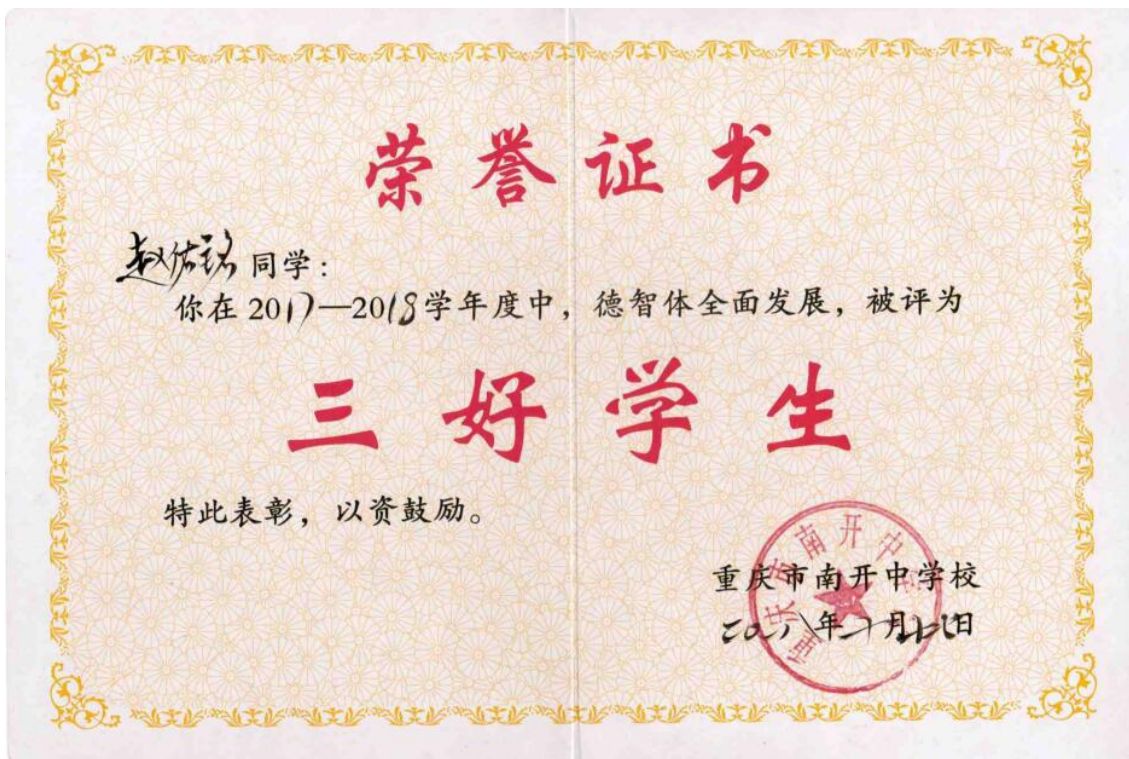 荣誉证书
赵佑铭同学：
你在2017—2018学年度中，德智体全面发展，被评为
三好学生
特此表彰，以资鼓励。
重庆市南开中学校
二〇一八年 月 日
重庆市南开中学